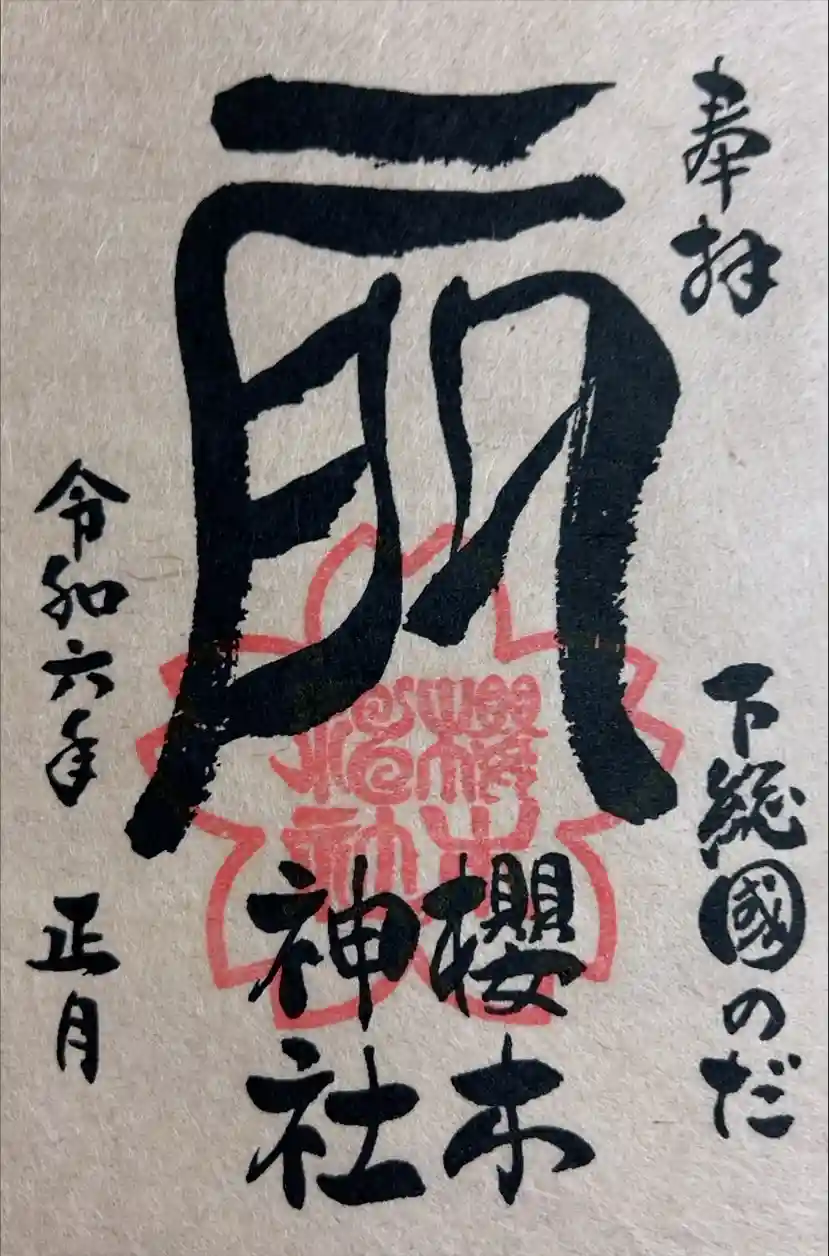 奉拝
下総國のだ
櫻木
神社
櫻木
神社
令和六年 正月